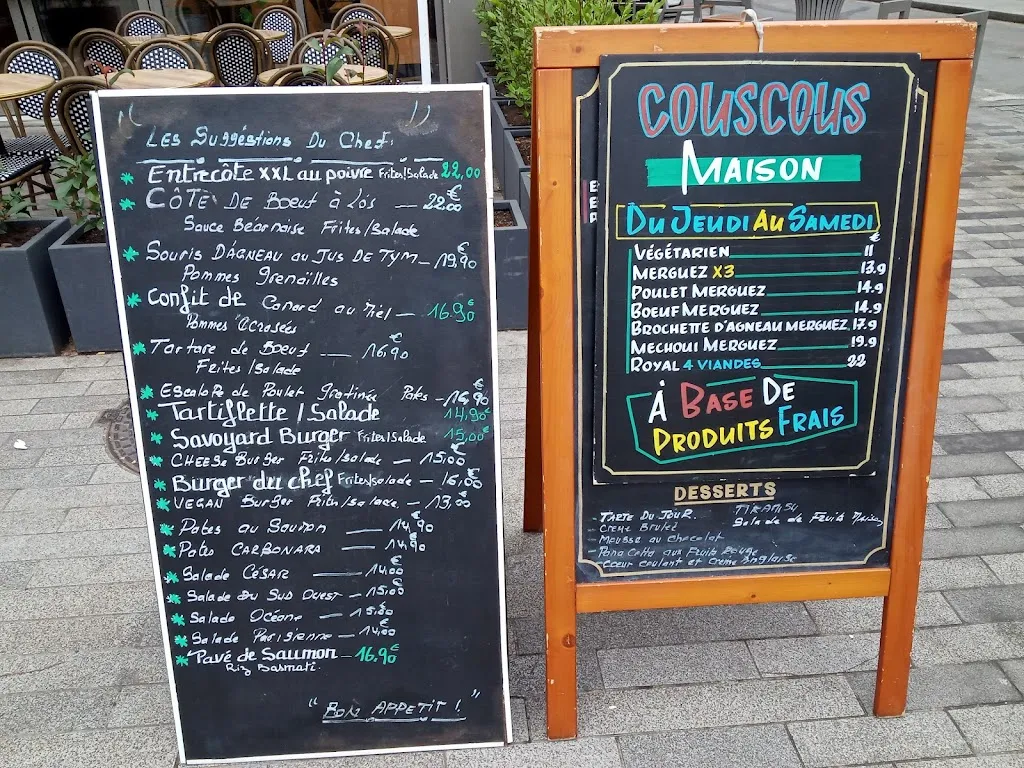 " Les Suggéstions Du Chef: "
Entrecôte XXL au poivre Frites/Salade 22,00
CÔTE DE Boeuf à L'os — 22,00 €
Sauce Béarnaise Frites/Salade
Souris D'AGNEAU au JUS DE TYM — 19,90 €
Pommes Grenailles
Confit de Canard au Miel — 16.90 €
Pommes Ecrasées
Tartare de Boeuf — 16,90 €
Frites /Salade
Escalope de Poulet Gratinée Pates — 16,90 €
Tartiflette / Salade 14,90 €
Savoyard Burger Frites/Salade 15,00 €
CHEESE Burger Frites/Salade — 15,00 €
Burger du chef Frites/Salade — 16,00 €
VEGAN Burger Frites/Salade — 13,00 €
Pates au Saumon — 14,90 €
Pates CARBONARA — 14,90 €
Salade CÉSAR — 14,00 €
Salade Du SUD OUEST — 15,00 €
Salade Océane — 15,00 €
Salade Parisienne — 14,00 €
Pavé de Saumon — 16,90 €
Riz Basmati
" BON APPETIT ! "
COUSCOUS
MAISON
DU JEUDI AU SAMEDI
€
VÉGÉTARIEN 11
MERGUEZ X3 13.9
POULET MERGUEZ 14.9
BOEUF MERGUEZ 14.9
BROCHETTE D'AGNEAU MERGUEZ 17.9
MECHOUI MERGUEZ 19.9
ROYAL 4 VIANDES 22
À BASE DE
PRODUITS FRAIS
DESSERTS
- TARTE DU JOUR TIRAMISU
- Creme Brulée Salade de Fruits
- Mousse au Chocolat
- Pana Cotta aux Fruits Rouge
- Coeur coulant et Creme Anglaise